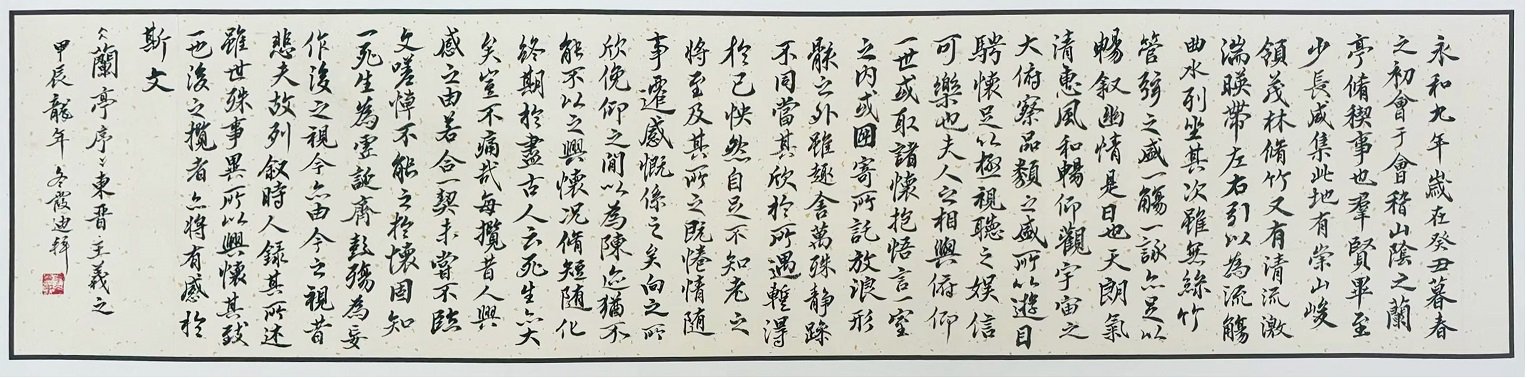 永和九年歲在癸丑暮春
之初會于會稽山陰之蘭
亭脩稧事也羣賢畢至
少長咸集此地有崇山峻
領茂林脩竹又有清流激
湍暎帶左右引以為流觴
曲水列坐其次雖無絲竹
管弦之盛一觴一詠亦足以
暢叙幽情是日也天朗氣
清惠風和暢仰觀宇宙之
大俯察品類之盛所以遊目
騁懷足以極視聽之娛信
可樂也夫人之相與俯仰
一世或取諸懷抱悟言一室
之內或因寄所託放浪形
骸之外雖趣舍萬殊静躁
不同當其欣於所遇蹔得
於己怏然自足不知老之
將至及其所之既惓情随
事遷感慨係之矣向之所
欣俛仰之閒以為陳迹猶不
能不以之興懷况脩短随化
終期於盡古人云死生亦大
矣豈不痛哉每攬昔人興
感之由若合一契未嘗不臨
文嗟悼不能之於懷固知
一死生為虛誕齊彭殤為妄
作後之視今亦由今之視昔
悲夫故列叙時人録其所述
雖世殊事異所以興懷其致
一也後之攬者亦將有感於
斯文
蘭亭序東晋王羲之
甲辰龍年冬